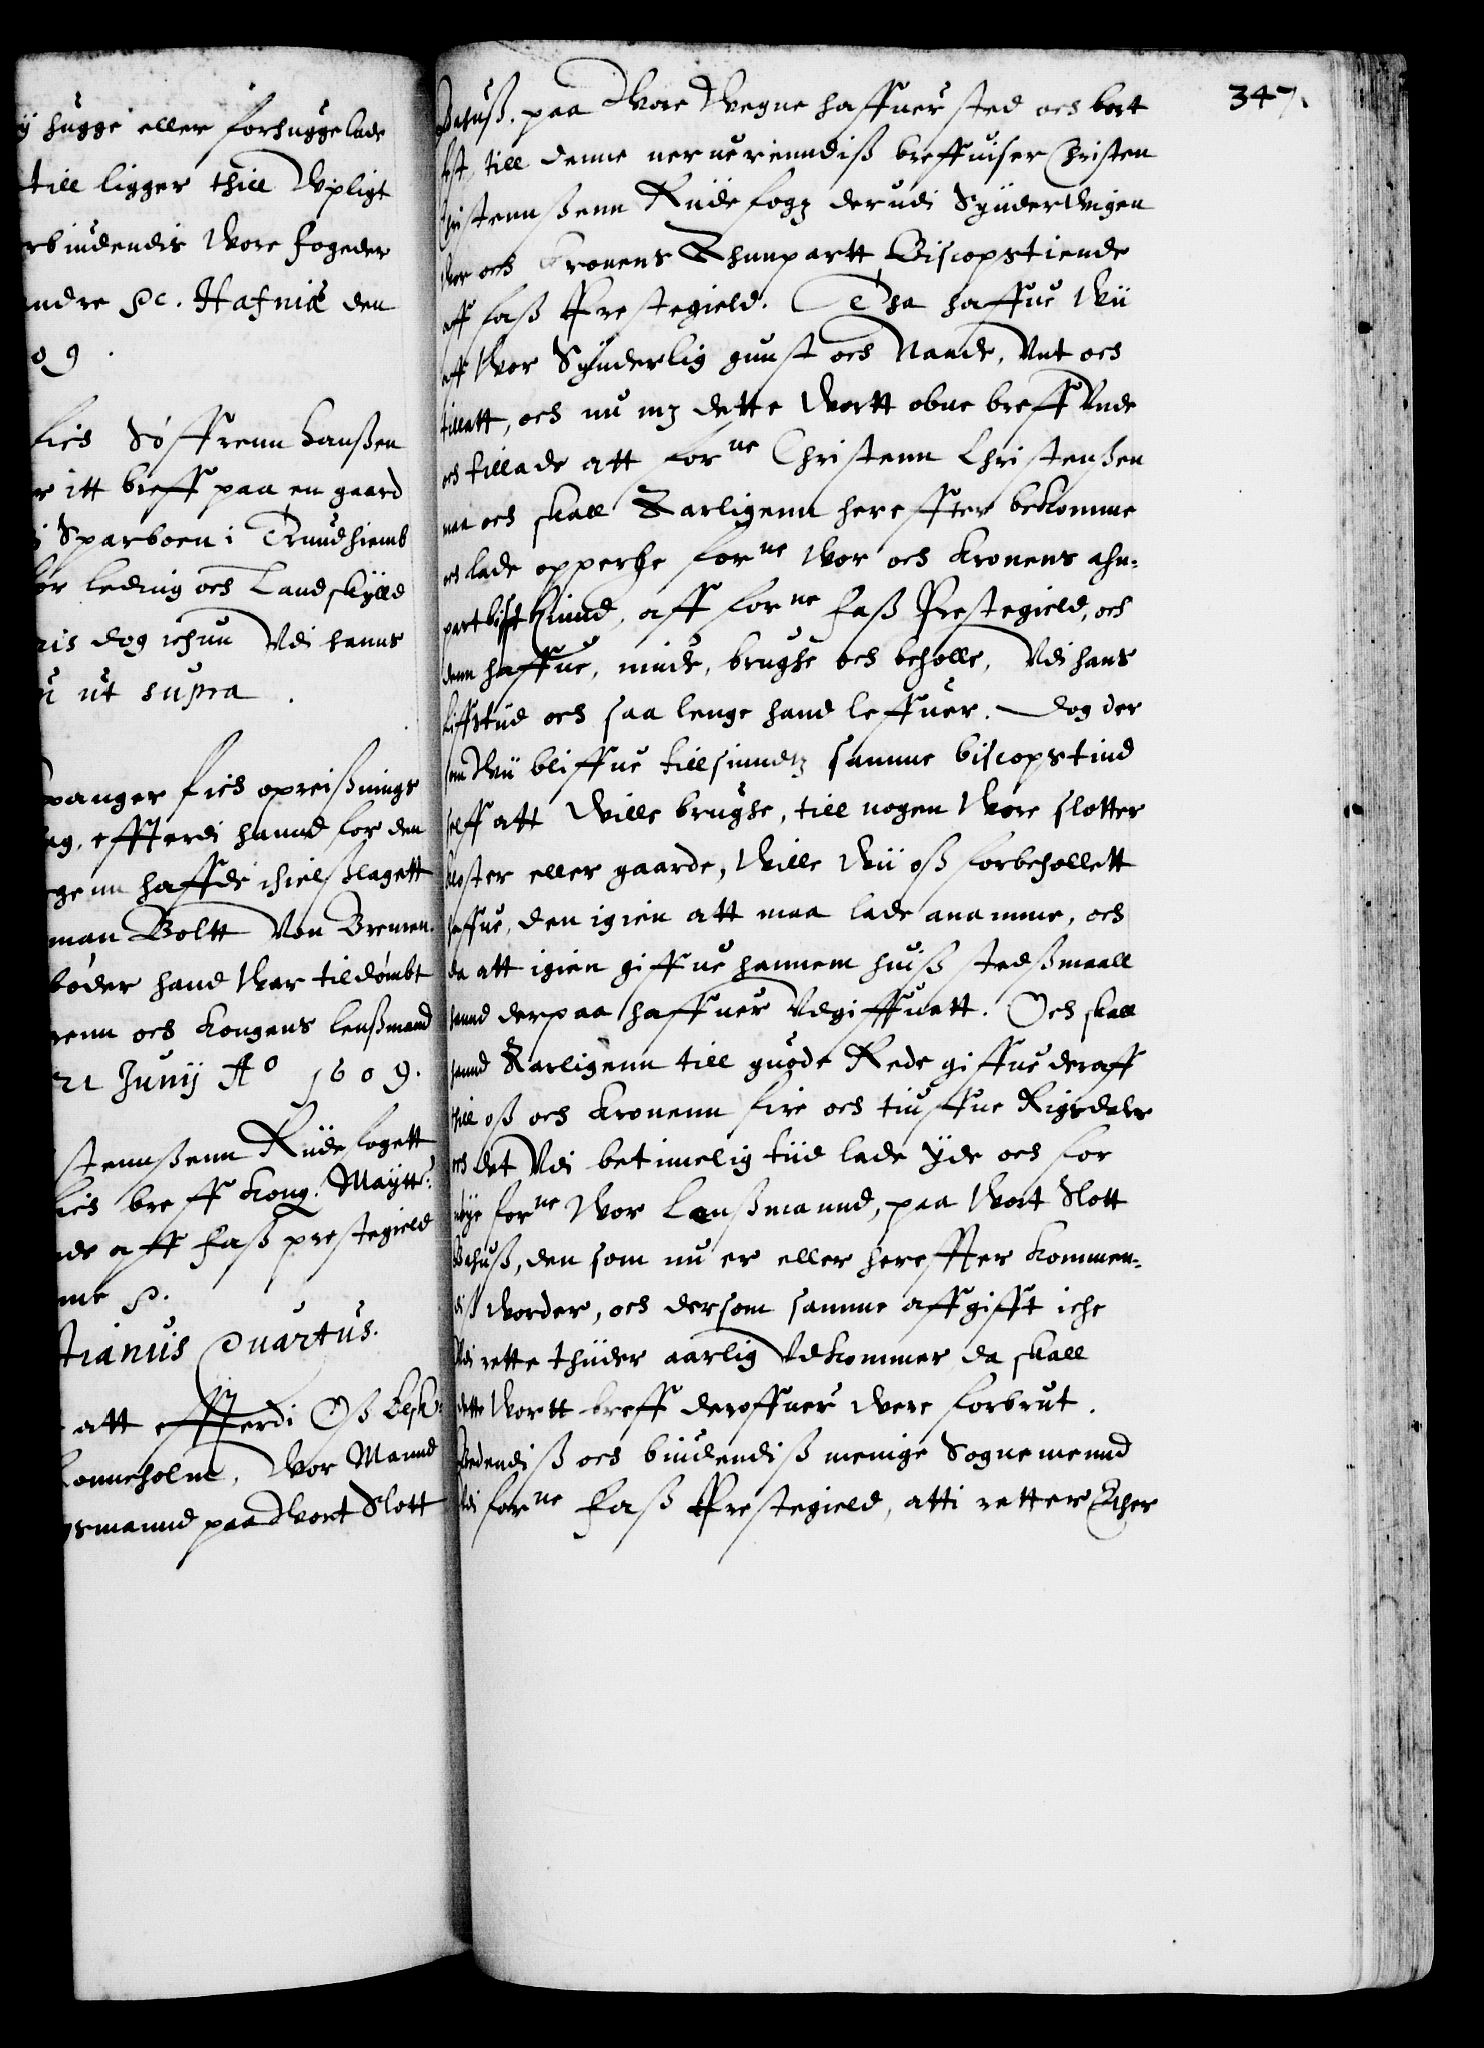 ij hugge eller forhugge lade
till ligger thill Wpligt
rbiudendis Wore fogeder
andre &c. Hafniæ den
09.
fich Søffrenn Hanßen
itt breff paa en gaard
i Sparboen i Trundhiemb
for leding och Landskyld
dog ichun Vdi hanns
ut supra.
panger fich opreißnings
effterdi hannd for den
genn haffde ihielßlagett
man Boltt Von Bremen
bøder hand War tildømbt
renn och Kongens lenßmand
21 Junij Ao 1609.
stennßenn Ridefogett
fich breff Kong. Maytt:
nde aff Faß prestegield
&.
tianus Quartus.
att effterdi Oß Elsk:
Konneholm, Wor Mannd
smannd paa Wort Slott
347.
Bahuß. paa Wore Wegne haffuer sted och bort
fest, till denne neruerenndiß breffuiser Christen
Christennßenn Ridefogz derudi Synder Wigen
Wor och Cronens Ahnpartt Biscopstiende
aff Faß Prestegield. Tha haffue Wii
aff Wor Synderlig gunst och Naade, Vnt och
tillatt, och nu mz dette Wortt obne breff Vnde
och tillade att forne Christenn Christenßen
maa och skall Aarligenn hereffter bekomme
och lade opperche forne Wor och Kronens ahn-
part bisp tiennd, aff forne Faß Prestegield, och
denn haffue, niude, brughe och beholle, Vdi hans
Liffstiid och saa lenge hand leffuer. Dog der
som Wii bliffue tillsinndz samme biscopstind
self att Wille brughe, till nogen Wore slotter
Kloster eller gaarde, Wille Wii oß forbehollett
haffue, den igien att maa lade anamme, och
da att igien giffue hannem huiß stedßmaall
hannd derpaa haffuer Vdgiffuett. Och skall
hannd Aarligenn till guode Rede giffue deraff
thill oß och Kronenn fire och tiuffue Rigsdaler
och det Vdi betimelig tiid lade yde och for
nøye forne Wor Lenßmannd, paa Wort Slott
Bahuß, den som nu er eller hereffter Kommen-
diß Worder, och dersom samme affgifft iche
Vdi rette thiider aarlig Vdkommer, da skall
dette Wortt breff deroffuer Were forbrut.
Bedendiß och biudendiß menige Sognemennd
Vdi forne Faß Prestegield, atti retter Ether